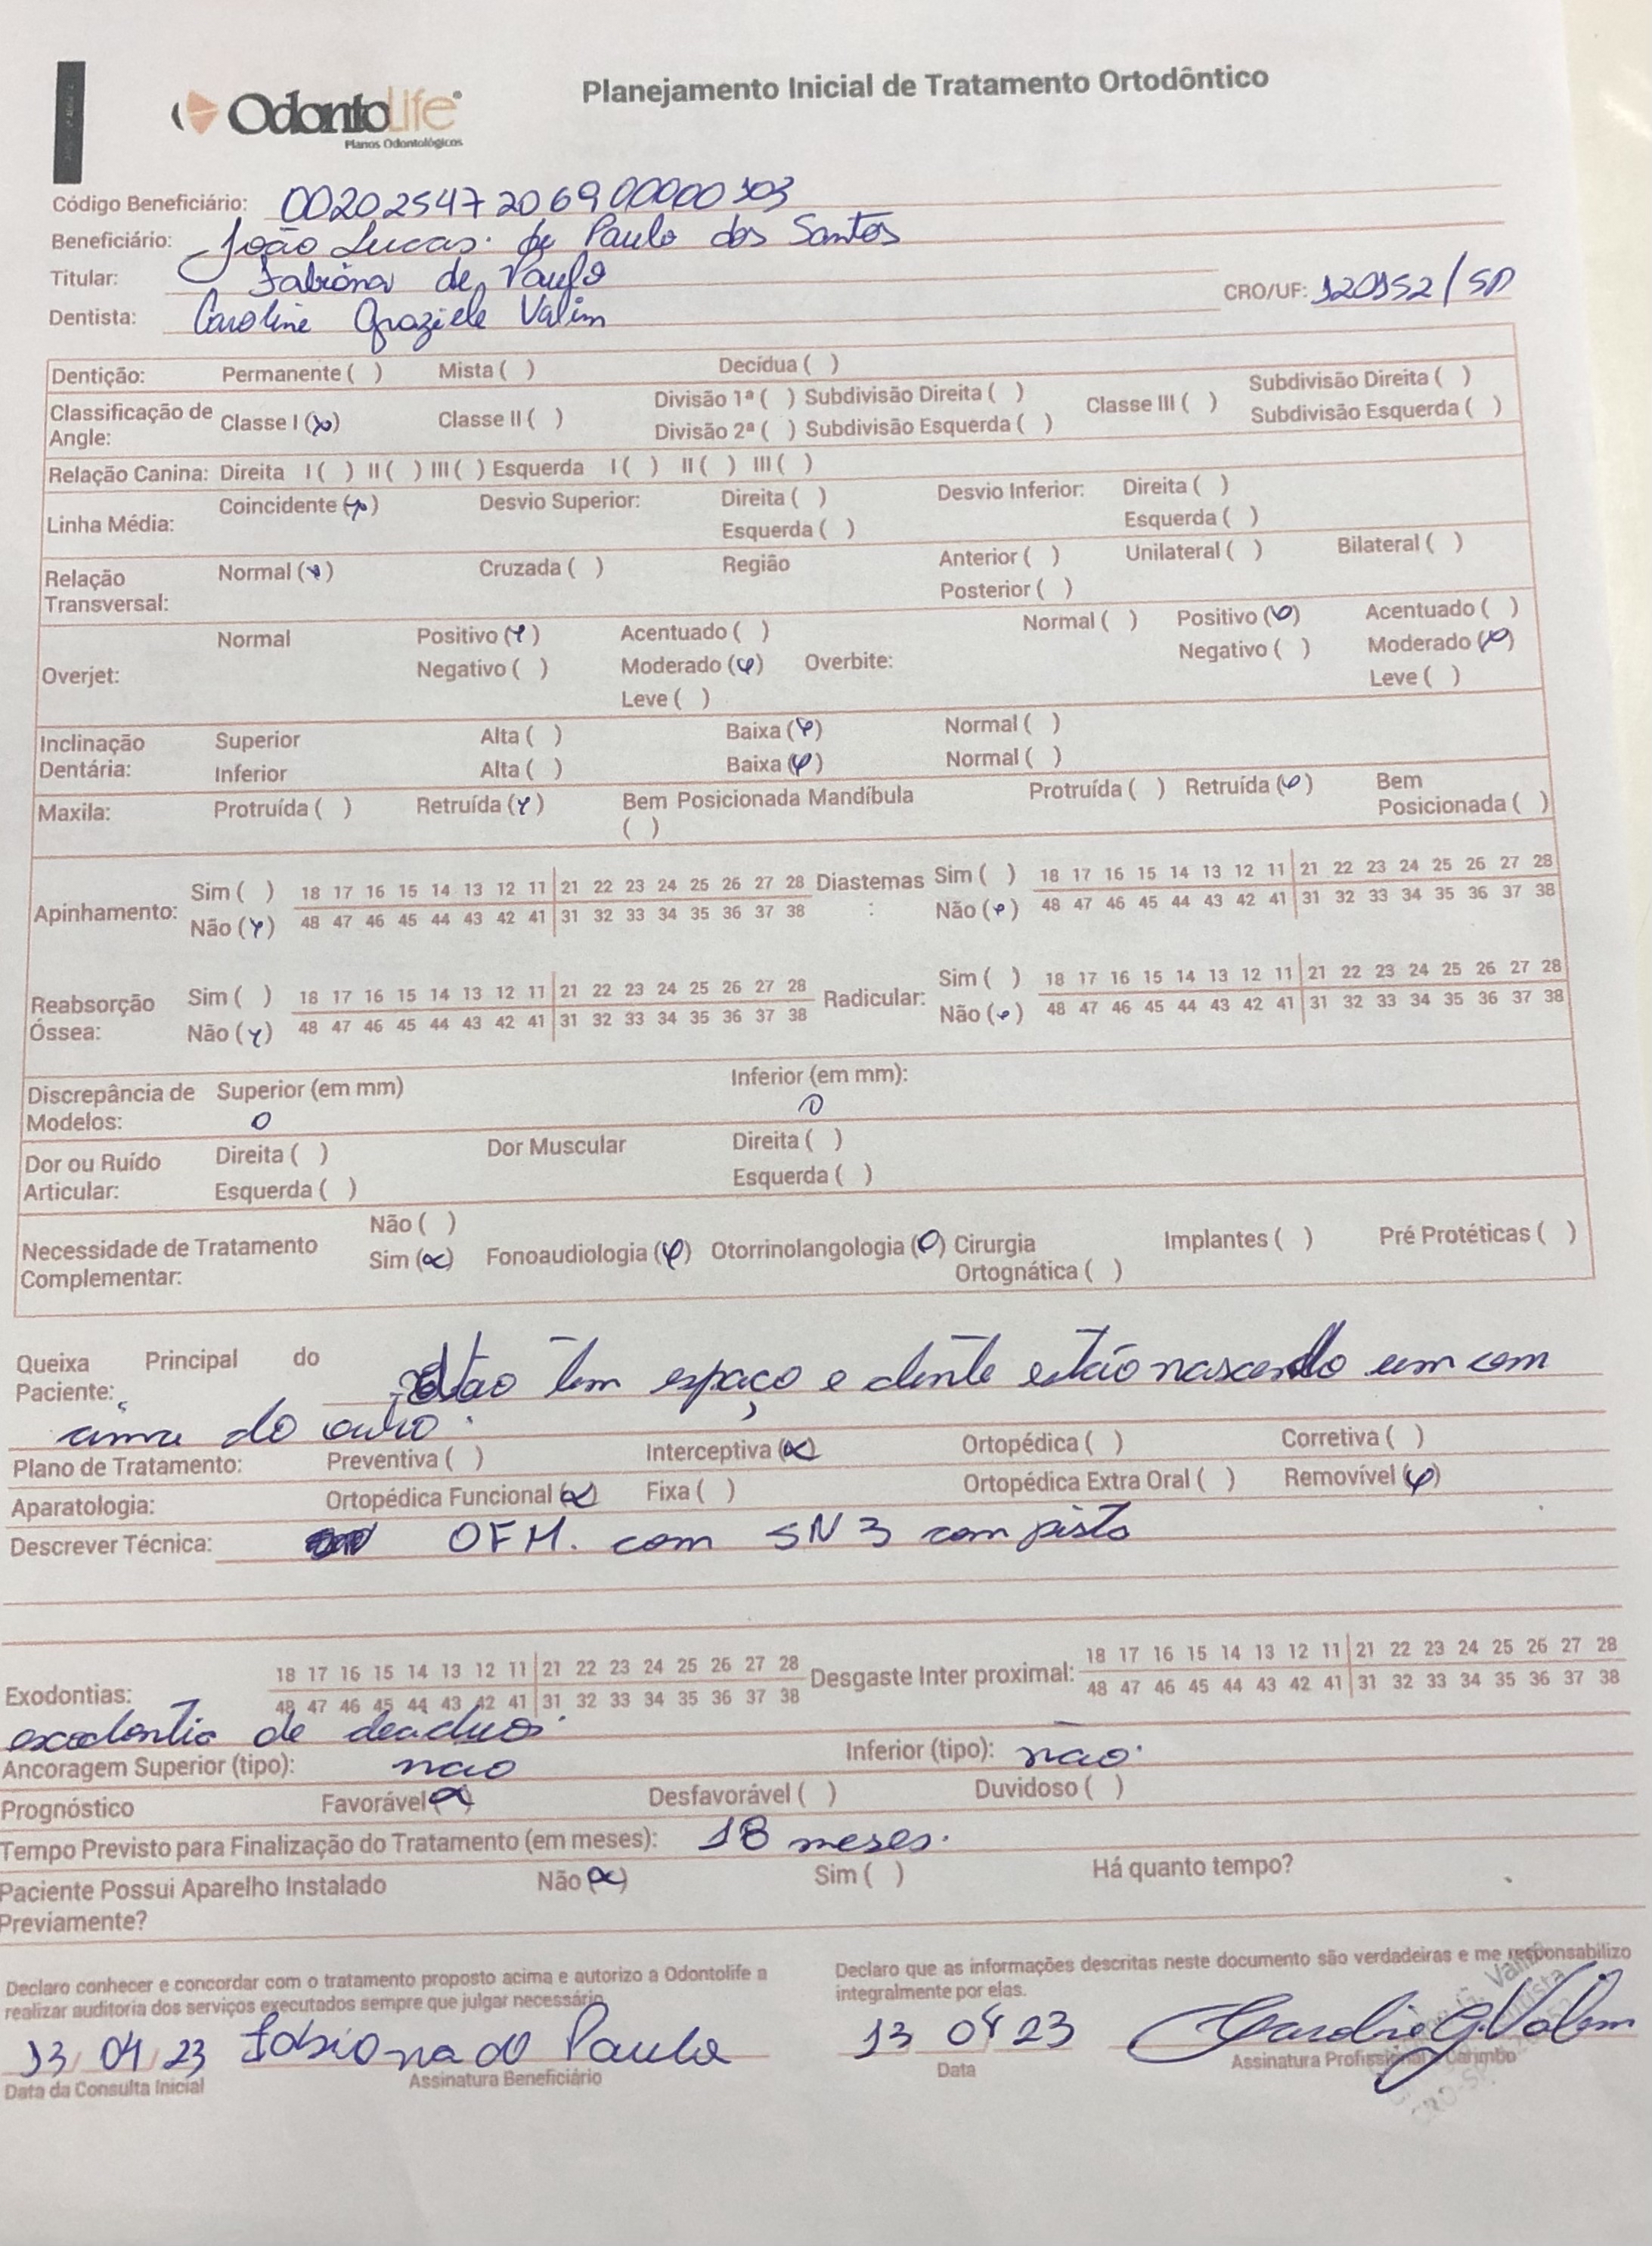 OdontoLife
Planos Odontológicos
Planejamento Inicial de Tratamento Ortodôntico
Código Beneficiário: 00202547206900000103
Beneficiário: João Lucas de Paulo dos Santos
Titular: Fabiana de Paulo
CRO/UF: 120152/SP
Dentista: Caroline Graziele Valim
Dentição: Permanente ( ) Mista ( ) Decídua ( )
Classificação de Angle: Classe I (x) Classe II ( ) Divisão 1ª ( ) Subdivisão Direita ( ) Classe III ( ) Subdivisão Direita ( )
Divisão 2ª ( ) Subdivisão Esquerda ( ) Subdivisão Esquerda ( )
Relação Canina: Direita I ( ) II ( ) III ( ) Esquerda I ( ) II ( ) III ( )
Linha Média: Coincidente (x) Desvio Superior: Direita ( ) Desvio Inferior: Direita ( )
Esquerda ( ) Esquerda ( )
Relação Transversal: Normal (x) Cruzada ( ) Região Anterior ( ) Unilateral ( ) Bilateral ( )
Posterior ( )
Overjet: Normal Positivo (x) Acentuado ( ) Overbite: Normal ( ) Positivo (x) Acentuado ( )
Negativo ( ) Moderado (x) Negativo ( ) Moderado (x)
Leve ( ) Leve ( )
Inclinação Dentária: Superior Alta ( ) Baixa (x) Normal ( )
Inferior Alta ( ) Baixa (x) Normal ( )
Maxila: Protruída ( ) Retruída (x) Bem Posicionada ( ) Mandíbula Protruída ( ) Retruída (x) Bem Posicionada ( )
Apinhamento: Sim ( ) 18 17 16 15 14 13 12 11 21 22 23 24 25 26 27 28 Diastemas : Sim ( ) 18 17 16 15 14 13 12 11 21 22 23 24 25 26 27 28
Não (x) 48 47 46 45 44 43 42 41 31 32 33 34 35 36 37 38 Não (x) 48 47 46 45 44 43 42 41 31 32 33 34 35 36 37 38
Reabsorção Óssea: Sim ( ) 18 17 16 15 14 13 12 11 21 22 23 24 25 26 27 28 Radicular: Sim ( ) 18 17 16 15 14 13 12 11 21 22 23 24 25 26 27 28
Não (x) 48 47 46 45 44 43 42 41 31 32 33 34 35 36 37 38 Não (x) 48 47 46 45 44 43 42 41 31 32 33 34 35 36 37 38
Discrepância de Modelos: Superior (em mm) 0 Inferior (em mm): 0
Dor ou Ruído Articular: Direita ( ) Dor Muscular Direita ( )
Esquerda ( ) Esquerda ( )
Necessidade de Tratamento Complementar: Não ( )
Sim (x) Fonoaudiologia (x) Otorrinolangologia (x) Cirurgia Ortognática ( ) Implantes ( ) Pré Protéticas ( )
Queixa Principal do Paciente: Não tem espaço e dente estão nascendo um em
cima do outro.
Plano de Tratamento: Preventiva ( ) Interceptiva (x) Ortopédica ( ) Corretiva ( )
Aparatologia: Ortopédica Funcional (x) Fixa ( ) Ortopédica Extra Oral ( ) Removível (x)
Descrever Técnica: OFM. com SN3 com pista
Exodontias: 18 17 16 15 14 13 12 11 21 22 23 24 25 26 27 28 Desgaste Inter proximal: 18 17 16 15 14 13 12 11 21 22 23 24 25 26 27 28
48 47 46 45 44 43 42 41 31 32 33 34 35 36 37 38 48 47 46 45 44 43 42 41 31 32 33 34 35 36 37 38
exodontia de deciduos.
Ancoragem Superior (tipo): não Inferior (tipo): não
Prognóstico Favorável (x) Desfavorável ( ) Duvidoso ( )
Tempo Previsto para Finalização do Tratamento (em meses): 18 meses.
Paciente Possui Aparelho Instalado Previamente? Não (x) Sim ( ) Há quanto tempo?
Declaro conhecer e concordar com o tratamento proposto acima e autorizo a Odontolife a
realizar auditoria dos serviços executados sempre que julgar necessário
Declaro que as informações descritas neste documento são verdadeiras e me responsabilizo
integralmente por elas.
13/04/23 Fabiana do Paula
Data da Consulta Inicial Assinatura Beneficiário
13 04 23 Caroline G. Valim
Data Assinatura Profissional e Carimbo